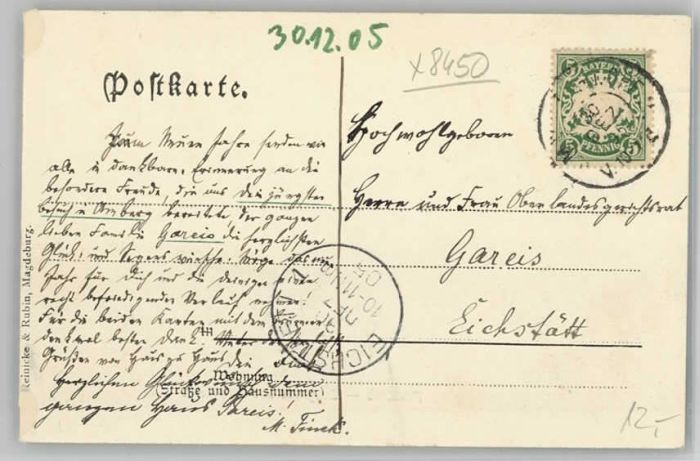 30.12.05
x8450
Postkarte.
BAYERN
5 PFENNIG 5
Zum Neuen Jahre senden wir
alle in dankbarer Erinnerung an die
besondere Freude, die uns Dein jüngster
Besuch in Amberg bereitete der ganzen
lieben Familie Gareis die herzlichsten
Glück- und Segenswünsche. Möge das neue
Jahr für Dich und die Deinigen einen
recht befriedigenden Verlauf nehmen!
Für die beiden Karten mit den
besten Dank.
Grüßen von Haus zu Haus
Herzlichen Glückwunsch dem
ganzen Haus Gareis!
M. Finck.
Hochwohlgeboren
Herrn und Frau Oberlandesgerichtsrat
Gareis
Eichstätt
in
Wohnung
(Straße und Hausnummer)
EICHSTÄTT
10-11 V.
05
Reinicke & Rubin, Magdeburg.
12,-